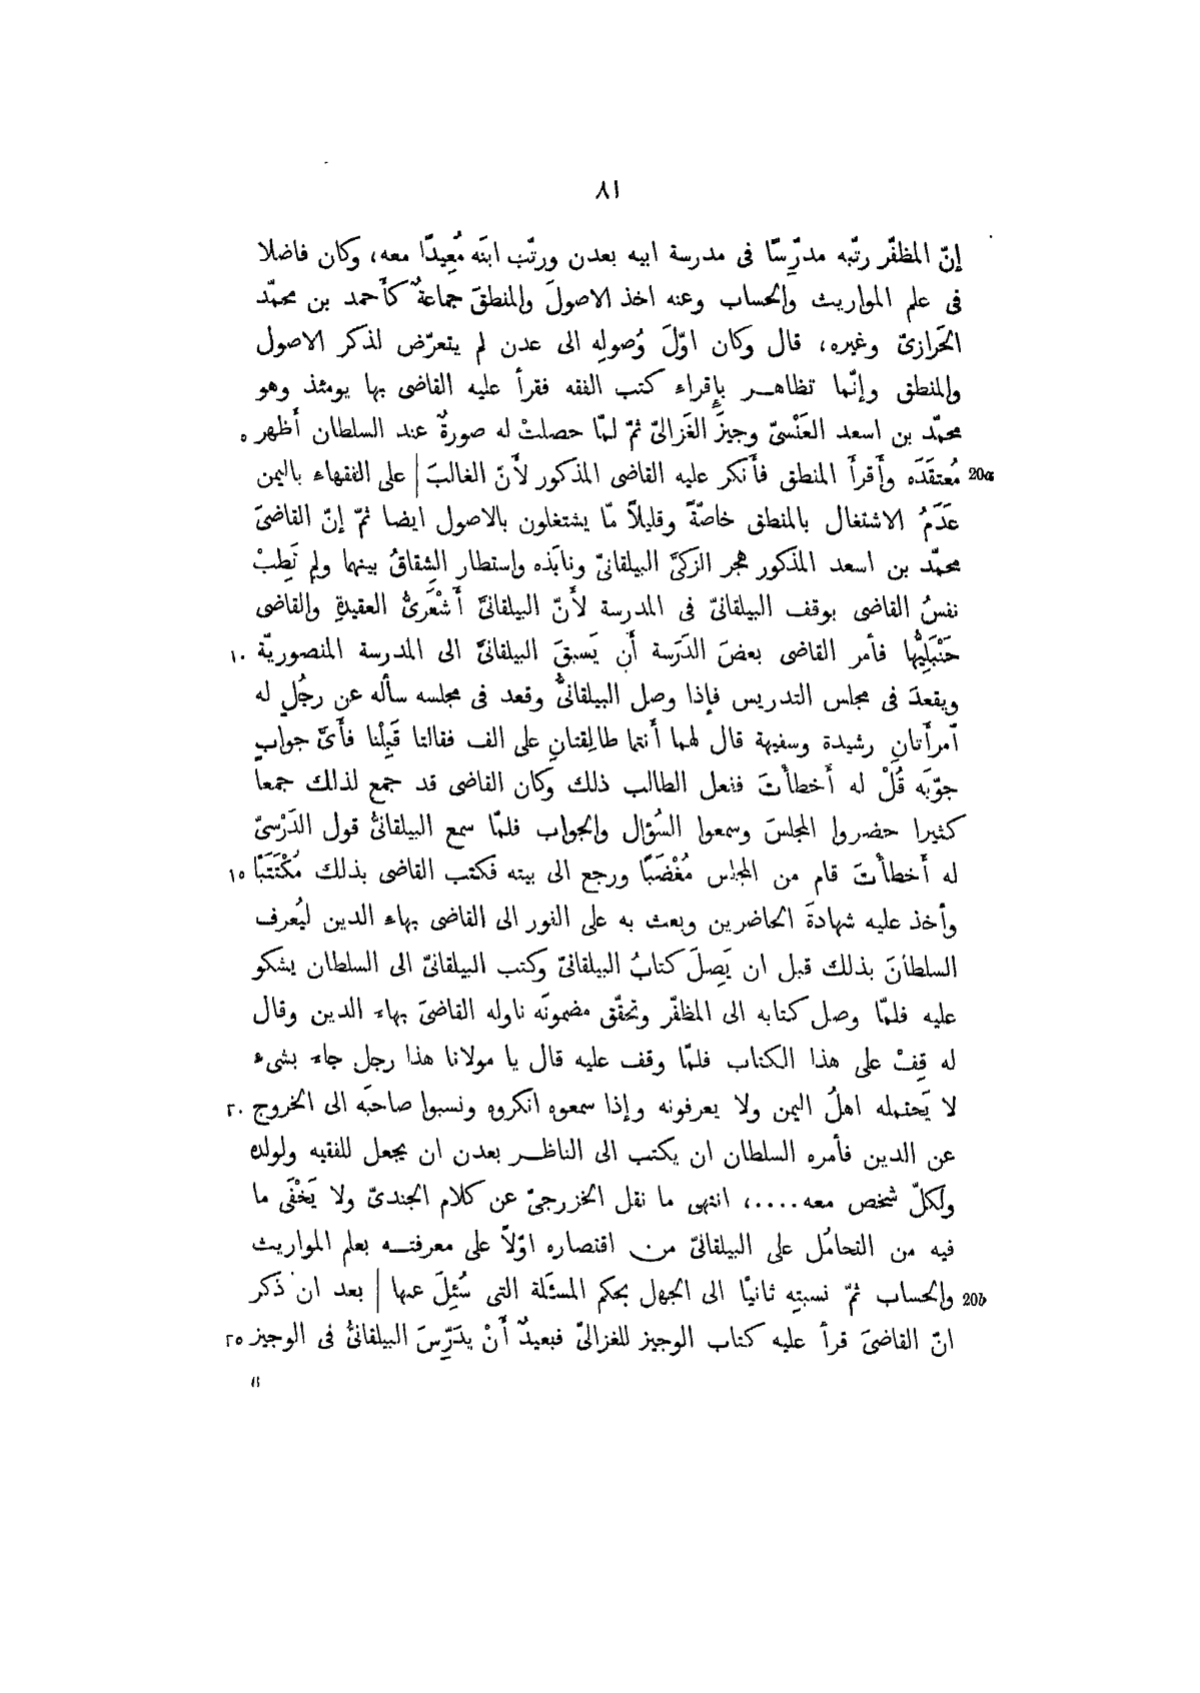 ٨١
إنّ المظفّر رتّبه مدرِّسًا فى مدرسة ابيه بعدن ورتّب ابنَه مُعِيدًا معه، وكان فاضلا
فى علم المواريث والحساب وعنه اخذ الاصولَ والمنطقَ جماعةٌ كأَحمد بن محمّد
الحَرازىّ وغيره، قال وكان اوّلَ وُصولِه الى عدن لم يتعرّض لذكر الاصول
والمنطق وإنّما تظاهر بإِقراء كتب الفقه فقرأ عليه القاضى بها يومئذ وهو
محمّد بن اسعد العَنْسىّ وجيزَ الغَزالىّ ثمّ لمّا حصلتْ له صورةٌ عند السلطان أَظهر ٥
مُعتقَدَه وأَقرأَ المنطق فأَنكر عليه القاضى المذكور لأَنّ الغالبَ | على الفقهاء باليمن 20a
عَدَمُ الاشتغال بالمنطق خاصّةً وقليلاً مّا يشتغلون بالاصول ايضا ثمّ إنّ القاضىَ
محمّد بن اسعد المذكور هجر الزكىَّ البيلقانىّ ونابَذه واستطار الشِقاقُ بينهما ولم تَطِبْ
نفسُ القاضى بوقف البيلقانىّ فى المدرسة لأَنّ البيلقانىَّ أَشْعَرىُّ العقيدةِ والقاضى
حَنْبَلِيُّها فأمر القاضى بعضَ الدَرَسة أَن يَسبقَ البيلقانىَّ الى المدرسة المنصوريّة ١٠
ويقعدَ فى مجلس التدريس فإذا وصل البيلقانىُّ وقعد فى مجلسه سأله عن رجُلٍ له
آمرأَتانِ رشيدة وسفيهة قال لهما أَنتما طالِقتانِ على الف فقالتا قَبِلْنا فأَىَّ جوابٍ
جوّبَه قُلْ له أَخطأْتَ ففعل الطالب ذلك وكان القاضى قد جمع لذلك جمعا
كثيرا حضروا المجلسَ وسمعوا السُؤال والجواب فلمّا سمع البيلقانىُّ قول الدَرْسىّ
له أَخطأْتَ قام من المجلس مُغْضَبًا ورجع الى بيته فكتب القاضى بذلك مُكْتَتَبًا ١٥
وأخذ عليه شهادةَ الحاضرين وبعث به على النور الى القاضى بهاء الدين ليُعرف
السلطانَ بذلك قبل ان يَصِلَ كتابُ البيلقانىّ وكتب البيلقانىّ الى السلطان يشكو
عليه فلمّا وصل كتابه الى المظفّر وتحقّق مضمونَه ناوله القاضىَ بهاء الدين وقال
له قِفْ على هذا الكتاب فلمّا وقف عليه قال يا مولانا هذا رجل جاء بشىء
لا يَحتمله اهلُ اليمن ولا يعرفونه وإذا سمعوه انكروه ونسبوا صاحبَه الى الخروج ٢٠
عن الدين فأمره السلطان ان يكتب الى الناظر بعدن ان يجعل للفقيه ولولده
ولكلّ شخص معه....، انتهى ما نقل الخزرجىّ عن كلام الجندىّ ولا يَخْفَى ما
فيه من التحامُل على البيلقانىّ من اقتصاره اوّلاً على معرفته بعلم المواريث
والحساب ثمّ نسبتِه ثانيًا الى الجهل بحكم المسئَلة التى سُئِلَ عنها | بعد ان ذَكر 20b
انّ القاضىَ قرأ عليه كتاب الوجيز للغزالىّ فبعيدٌ أَنْ يدَرِّسَ البيلقانىُّ فى الوجيز ٢٥
6